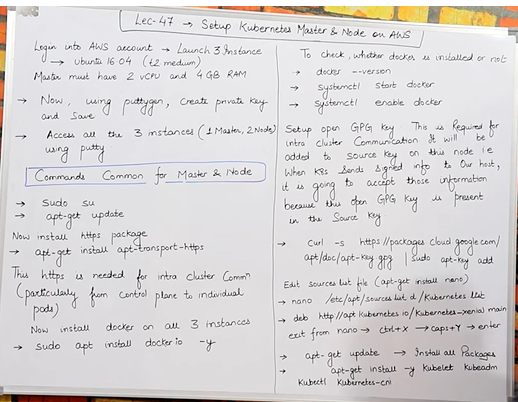 Lec-47 → Setup Kubernetes Master & Node on AWS
Login into AWS account → Launch 3 Instance
→ Ubuntu 16.04 (t2 medium)
Master must have 2 vCPU and 4 GB RAM
→ Now, using puttygen, create private key
and save
→ Access all the 3 instances (1 Master, 2 Node)
using putty
Commands Common for Master & Node
→ Sudo su
→ apt-get update
Now install https package
→ apt-get install apt-transport-https
This https is needed for intra cluster Commn
(particularly from control plane to individual
pods)
Now install docker on all 3 instances
→ Sudo apt install docker.io -y
To check, whether docker is installed or not
→ docker --version
→ systemctl start docker
→ systemctl enable docker
Setup open GPG Key This is Required for
intra cluster Communication It will be
added to source key on this node i.e
When K8s Sends Signed info to Our host,
it is going to accept those information
because this open GPG Key is present
in the Source Key
→ curl -s https://packages.cloud.google.com/
apt/doc/apt-key.gpg | sudo apt-key add
Edit sources list file (apt-get install nano)
→ nano /etc/apt/sources.list.d/Kubernetes.list
→ deb http://apt.kubernetes.io/Kubernetes-xenial main
exit from nano → ctrl+X → caps+Y → enter
→ apt-get update → Install all Packages
→ apt-get install -y Kubelet Kubeadm
Kubectl Kubernetes-cni